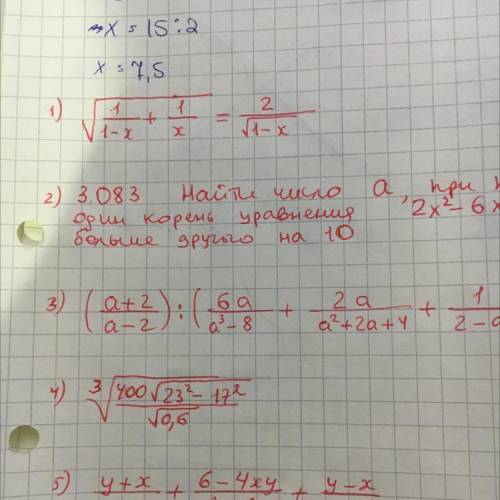 x = 15 : 2
x = 7,5
1) √(1/(1-x) + 1/x) = 2/√(1-x)
2) 3.083 Найти число a, при
один корень уравнения 2x² - 6x
больше другого на 10
3) ((a+2)/(a-2)) : (6a/(a³-8) + 2a/(a²+2a+4) + 1/(2-a
4) ∛(400√(23² - 17²)/√0,6)
5) (y+x)/ + (6-4xy)/ + (y-x)/